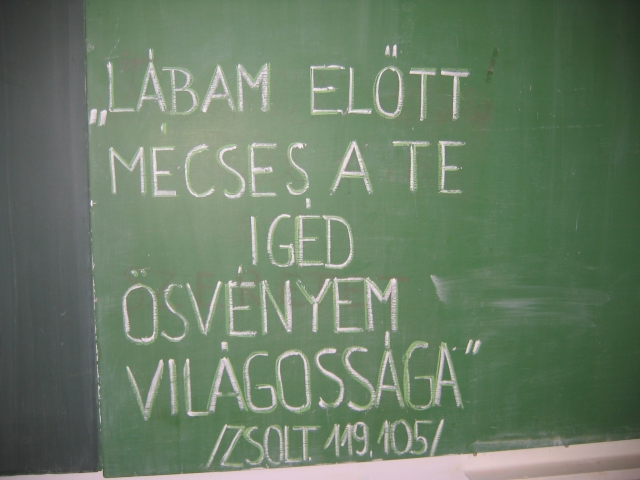 „LÁBAM ELŐTT
MÉCSES A TE
IGÉD
ÖSVÉNYEM
VILÁGOSSÁGA”
/ZSOLT. 119,105/